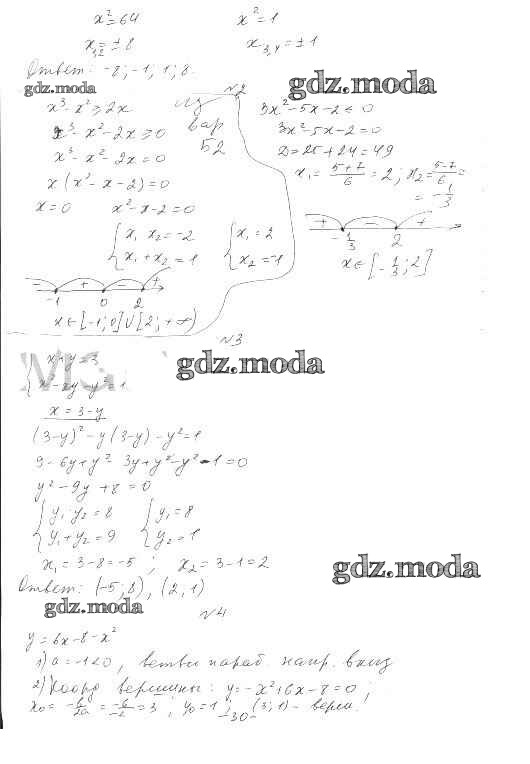 x² = 64 x² = 1
x₁,₂ = ± 8 x₃,₄ = ± 1
Ответ: -8; -1; 1; 8.
gdz.moda
gdz.moda
N2
x³ - x² ≥ 2x
x³ - x² - 2x ≥ 0
x³ - x² - 2x = 0
x (x² - x - 2) = 0
x = 0 x² - x - 2 = 0
{ x₁ x₂ = -2
x₁ + x₂ = 1
{ x₁ = 2
x₂ = -1
- + - +
-1 0 2
x ∈ [-1; 0] ∪ [2; +∞)
из
вар
52
3x² - 5x - 2 ≤ 0
3x² - 5x - 2 = 0
D = 25 + 24 = 49
x₁ = (5+7)/6 = 2; x₂ = (5-7)/6 =
= -1/3
+ - +
-1/3 2
x ∈ [-1/3; 2]
N3
gdz.moda
{ x + y = 3
x² - xy - y² = 1
x = 3 - y
(3-y)² - y(3-y) - y² = 1
9 - 6y + y² - 3y + y² - y² - 1 = 0
y² - 9y + 8 = 0
{ y₁ y₂ = 8
y₁ + y₂ = 9
{ y₁ = 8
y₂ = 1
x₁ = 3 - 8 = -5; x₂ = 3 - 1 = 2
gdz.moda
Ответ: (-5; 8), (2, 1)
gdz.moda
N4
y = 6x - 8 - x²
1) a = -1 < 0, ветви параб. напр. вниз
2) Коорд вершины: y = -x² + 6x - 8 = 0;
x₀ = -b/2a = -6/-2 = 3; y₀ = 1; (3; 1) - верш.
-30-